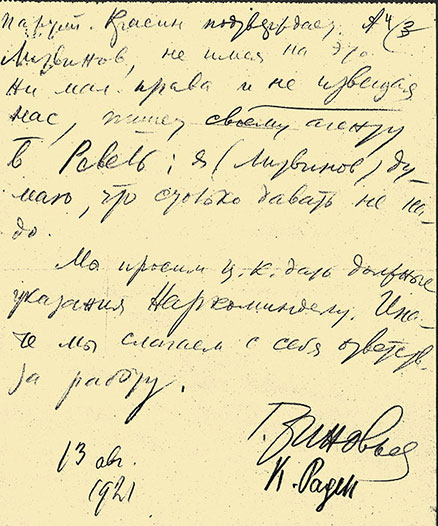 Красин подтверждает. А
Литвинов, не имея на это
ни мал. права и не извещая
нас, пишет своему агенту
в Ревель: я (Литвинов) ду-
маю, что столько давать не на-
до.
Мы просим Ц.К. дать должные
указания Наркоминделу. Ина-
че мы слагаем с себя ответств.
за работу.
Г. Зиновьев
К. Радек
13 авг.
1921